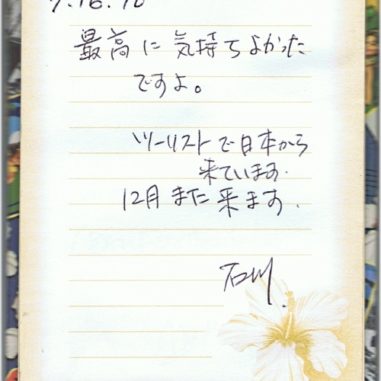 9.16.10
最高に気持ちよかった
ですよ。
ツーリストで日本から
来ています.
12月また来ます.
石川